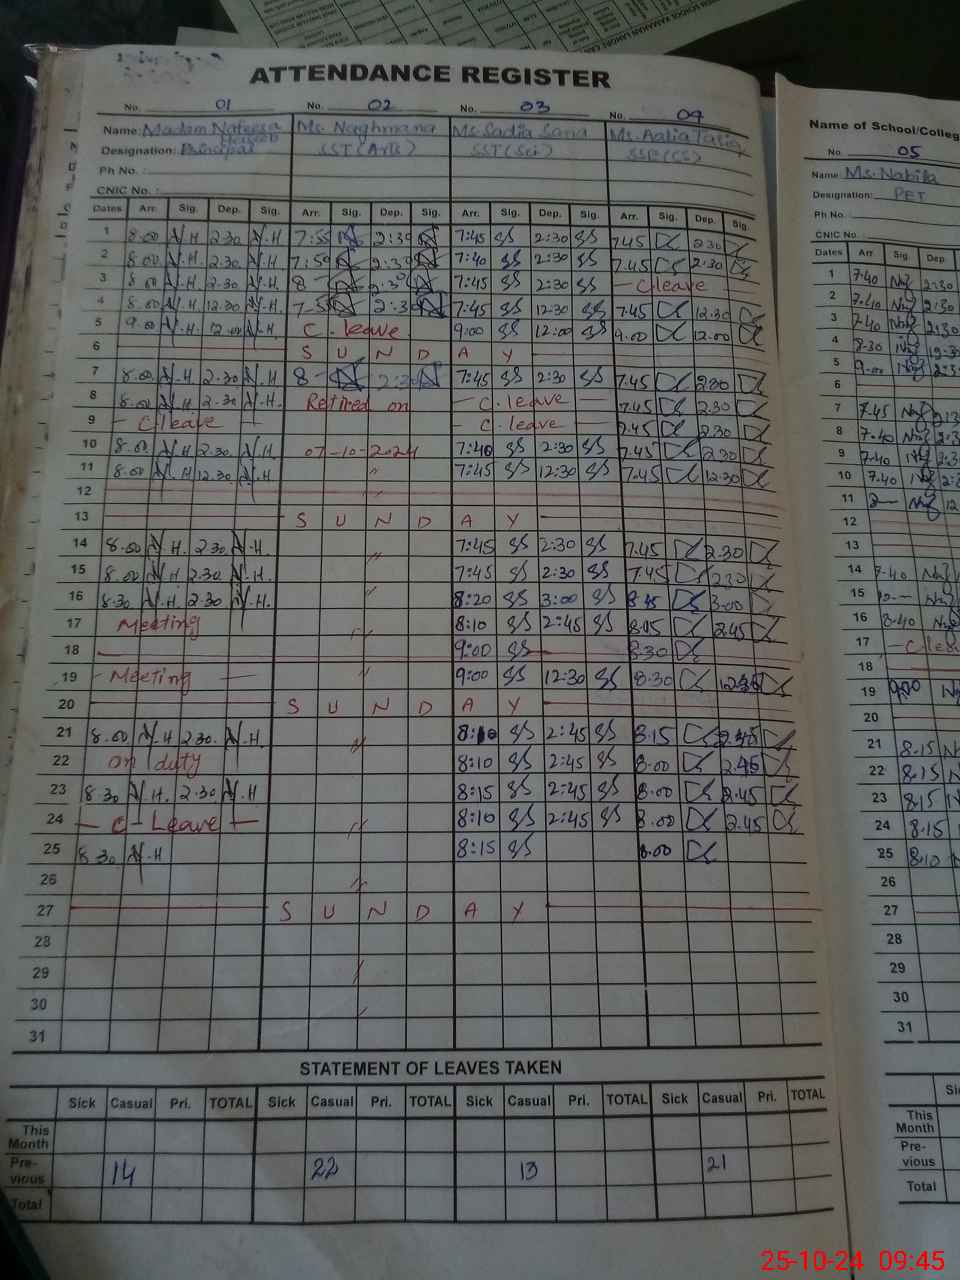 ATTENDANCE REGISTER
No. 01 No. 02 No. 03 No. 04
Name: Madam Nafeesa Ms. Naghmana Ms. Sadia Sana Ms. Aalia Tariq
Designation: Principal SST (Arts) SST (Sci) SSE (CS)
Ph No. :
CNIC No. :
Dates Arr. Sig. Dep. Sig. Arr. Sig. Dep. Sig. Arr. Sig. Dep. Sig. Arr. Sig. Dep. Sig.
1 8.00 N.H 2.30 N.H 7:55 2:30 7:45 SS 2:30 SS 7.45 2.30
2 8.00 N.H 2.30 N.H 7:50 2:30 7:40 SS 2:30 SS 7.45 2.30
3 8.00 N.H 2.30 N.H 8 - 2:30 7:45 SS 2:30 SS - C leave -
4 8.00 N.H 12.30 N.H 2:30 7:45 SS 12:30 SS 7.45 12.30
5 9.00 N.H 12.00 N.H C. leave 9:00 SS 12:00 SS 9.00 12.00
6 S U N D A Y
7 8.00 N.H 2.30 N.H 8 - 2:30 7:45 SS 2:30 SS 7.45 2.30
8 8.00 N.H 2.30 N.H. Retired on - C. leave - 7.45 2.30
9 - C leave - - C. leave - 7.45 2.30
10 8.00 N.H 2.30 N.H 07-10-2024 7:40 SS 2:30 SS 7.45 2.30
11 8.00 N.H 12.30 N.H " 7:45 SS 12:30 SS 7.45 12.30
12 "
13 S U N D A Y
14 8.00 N.H. 2.30 N.H. " 7:45 SS 2:30 SS 7.45 2.30
15 8.00 N.H 2.30 N.H. " 7:45 SS 2:30 SS 7.45 2.30
16 8.30 N.H. 2.30 N.H. " 8:20 SS 3:00 SS 8.45 3.00
17 Meeting " 8:10 SS 2:45 SS 8.05 2.45
18 " 9:00 SS 8.30
19 - Meeting - " 9:00 SS 12:30 SS 8.30 12.30
20 S U N D A Y
21 8.00 N.H 2.30 N.H. " 8:10 SS 2:45 SS 8.15 2.45
22 on duty 8:10 SS 2:45 SS 8.00 2.45
23 8.30 N.H. 2.30 N.H 8:15 SS 2:45 SS 8.00 2.45
24 - C - Leave - " 8:10 SS 2:45 SS 8.00 2.45
25 8.30 N.H 8:15 SS 8.00
26 "
27 S U N D A Y
28
29 "
30 "
31
STATEMENT OF LEAVES TAKEN
Sick Casual Pri. TOTAL Sick Casual Pri. TOTAL Sick Casual Pri. TOTAL Sick Casual Pri. TOTAL
This Month
Pre-vious 14 22 13 21
Total
Name of School/Colleg
No 05
Name: Ms. Nabila
Designation: PET
Ph No.
CNIC No. :
Dates Arr Sig. Dep.
1 7.40 2:30
2 7.40 2:30
3 7.40 2:30
4 8.30 12.3
5 9.00
6
7 7.45 2:3
8 7.40 2:3
9 7.40 2:3
10 7.40
11 8 - 12
12
13
14 7.40
15
16 8.40
17 - C lea
18
19 9.00
20
21 8.15
22 8.15
23 8.15
24 8.15
25 8.10
26
27
28
29
30
31
This Month
Pre-vious
Total
25-10-24 09:45